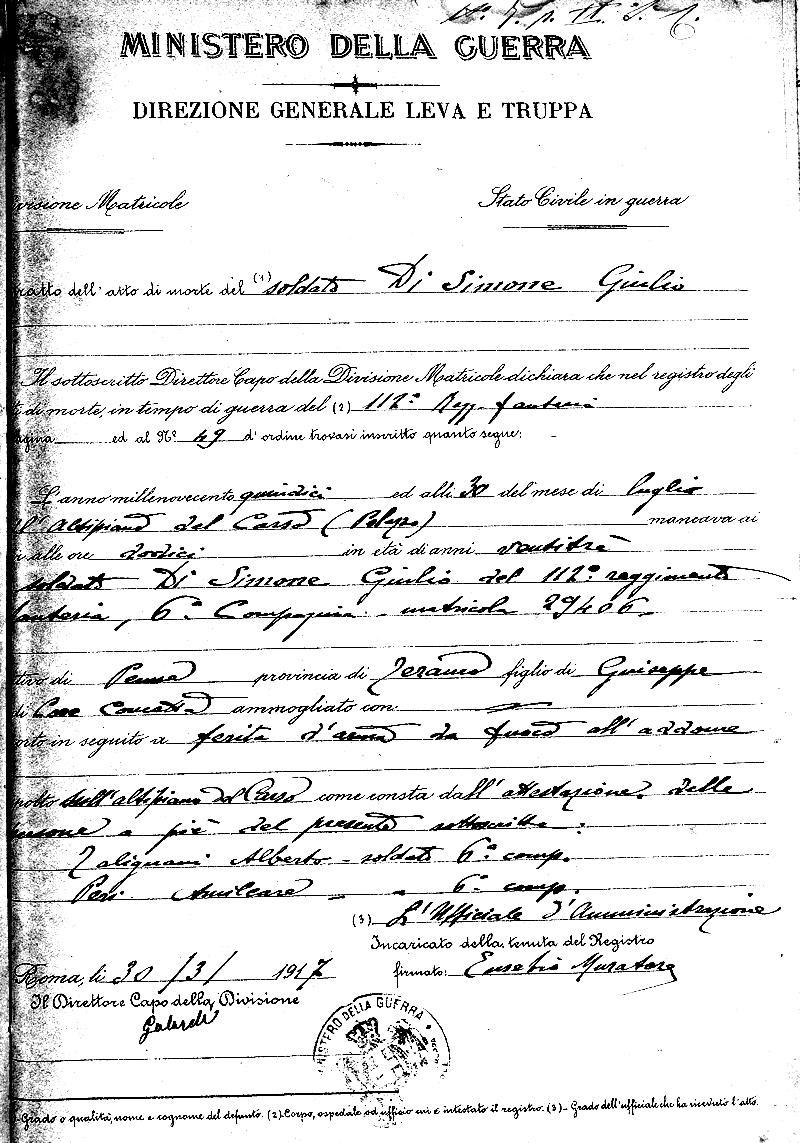 MINISTERO DELLA GUERRA
DIREZIONE GENERALE LEVA E TRUPPA
visione Matricole
Stato Civile in guerra
ratto dell'atto di morte del (1) soldato Di Simone Giulio
Il sottoscritto Direttore Capo della Divisione Matricole dichiara che nel registro degli
ti di morte, in tempo di guerra del (2) 112° Regg. fanteria
agina ed al N° 49 d'ordine trovasi inscritto quanto segue:
L'anno millenovecento quindici ed alli 30 del mese di luglio
Altipiano del Carso mancava ai
i alle ore dodici in età di anni ventitrè
soldato Di Simone Giulio del 112° reggimento
fanteria, 6a Compagnia - matricola 29406
tivo di Penna provincia di Teramo figlio di Guiseppe
di Concetta ammogliato con
orto in seguito a ferita d'arma da fuoco all'addome
polto sull'altipiano del Carso come consta dall'attestazione delle
persone a piè del presente sottoscritte:
Talignani Alberto - soldato 6a comp.
Peri Amilcare " 6a comp.
(3) L'Ufficiale d'Amministrazione
Incaricato della tenuta del Registro
Roma, li 30/3/1917 firmato: Eusebio Muratore
Il Direttore Capo della Divisione
MINISTERO DELLA GUERRA
Grado o qualità, nome e cognome del defunto. (2) Corpo, ospedale od ufficio cui è intestato il registro. (3) - Grado dell'ufficiale che ha ricevuto l'atto.